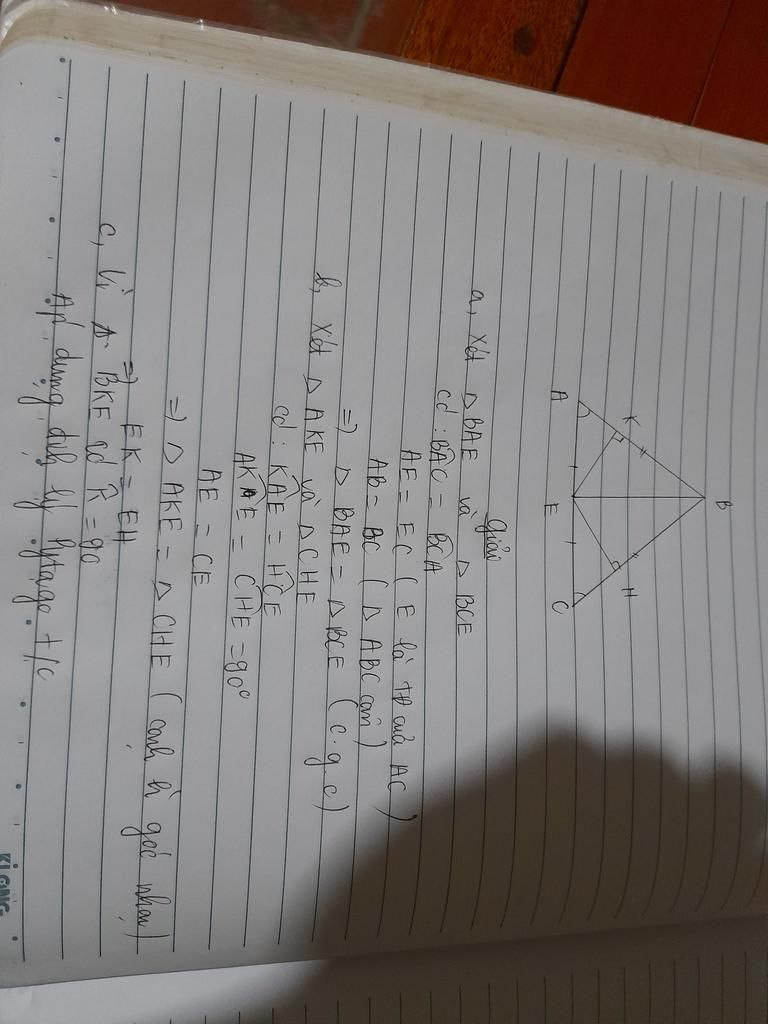 B
K
H
A
E
C
giải
a, Xét △ BAE và △ BCE
có : BÂC = BĈA
AE = EC ( E là TĐ của AC )
AB = BC ( △ ABC cân )
=> △ BAE = △ BCE ( c . g . c )
b, Xét △ AKE và △ CHE
có : KÂE = HĈE
AK̂E = CĤE = 90°
AE = CE
=> △ AKE = △ CHE ( cạnh h góc nhọn )
=> EK = EH
c, Vì △ BKE có K̂ = 90
Áp dụng định lý Pytago t/c
KLONG